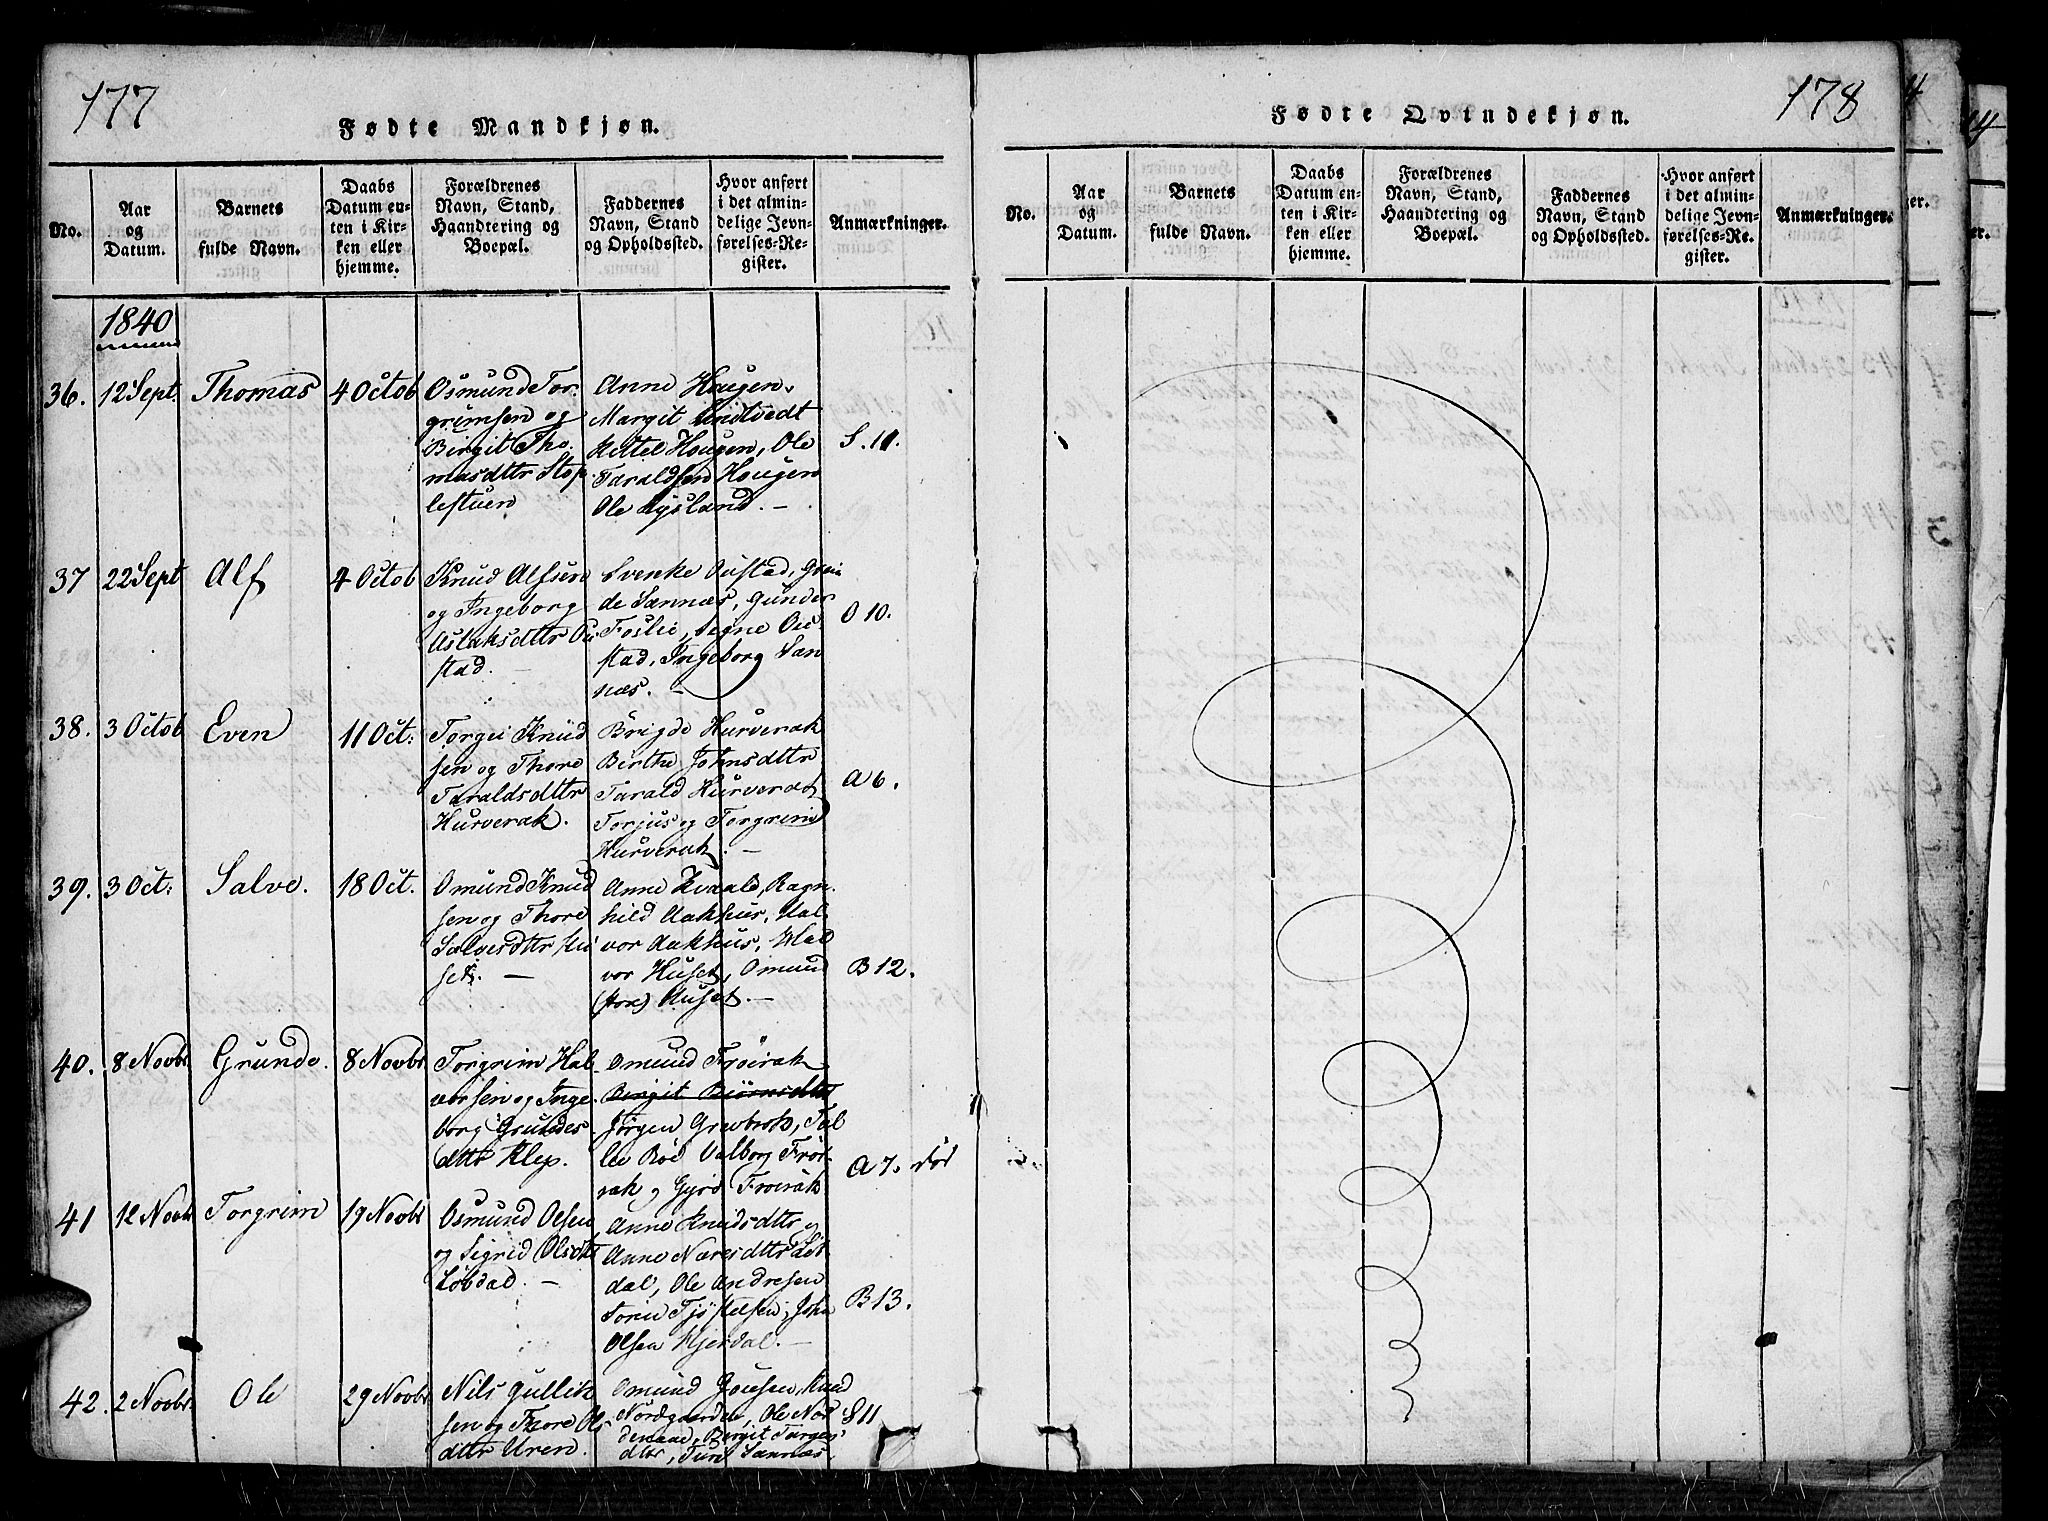 177
Fødte Mandkjøn.
No.
Aar
og
Datum.
Barnets
fulde Navn.
Daabs
Datum en-
ten i Kir-
ken eller
hjemme.
Forældrenes
Navn, Stand,
Haandtering og
Boepæl.
Faddernes
Navn, Stand
og Opholdssted.
Hvor anført
i det almin-
delige Jevn-
førelses-Re-
gister.
Anmærkninger.
1840
36. 12 Sept. Thomas 4 Octob
Osmund Tor-
grimsen og
Birgit Tho-
masdttr Stop
lestuen
Anne Hougen,
Margit Lindtvedt
Kittel Hougen, Ole
Taraldsen Hougen
Ole Rysland. –
S. 11.
37 22 Sept Alf 4 Octob
Knud Alfsen
og Ingeborg
Aslaksdttr Ou
stad. –
Svenke Oustad,
de Sannæs, Gunder
Foslie, Segne Ou-
stad, Ingeborg San
næs. –
O 10.
38. 3 Octob Even 11 Oct:
Torgei Knud
sen og Thore
Taraldsdttr
Hurverak.
Brigde Hurverak
Birthe Johnsdttr
Tarald Hurverak
Torjus og Torgrim
Hurverak. –
A 6.
39. 3 Oct: Salve. 18 Oct.
Omund Knud
sen og Thore
Salvesdttr Hu
set. –
Anne Kvaald, Ragn-
hild Aakhus, Hal-
vor Aakhus, Hal
vor Huset, Omund
Huset. –
B 12.
40. 8 Novbr Grunde. 8 Novbr
Torgrim Hal-
vorsen og Inge-
borg Grundes
dttr Klep.
Omund Frøirak
Birgit Biörnsdttr
Jørgen Grevbrok, Tal
lei Röe Valborg Frøi-
rak og Gyro Froirak
A 7. død
41 12 Novbr Torgrim 19 Novbr
Osmund Olsen
og Sigrid Olsdttr
Løbdal. –
Anne Knudsdttr og
Anne Næresdttr
dal, Ole Andresen
Tjøstelsen, John
Olsen Hjerdal. –
B 13.
42. 2 Novbr. Ole 29 Novbr
Nils Gullik
sen og Thore Ols
dttr Uren.
Omund Jonsen, Knud
Nordgaarden, Ole Nor
denaae, Birgit Torges
dttr, Turi Sannæs.
S 11
178
Fødte Qvindekjøn.
No.
Aar
og
Datum.
Barnets
fulde Navn.
Daabs
Datum en-
ten i Kir-
ken eller
hjemme.
Forældrenes
Navn, Stand,
Haandtering og
Boepæl.
Faddernes
Navn, Stand
og Opholdssted.
Hvor anført
i det almin-
delige Jevn-
førelses-Re-
gister.
Anmærkninger.